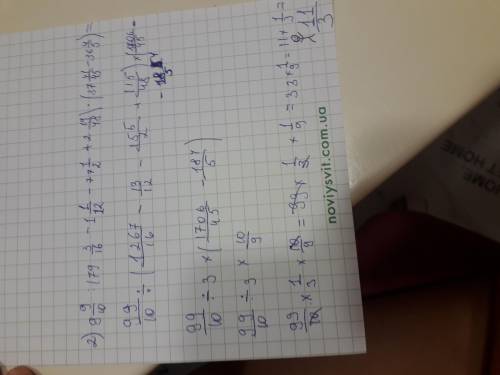 2) 9 9/10 : (79 3/16 - 1 1/12 - 77 1/2 + 2 19/48) · (37 41/45 - 36 4/5) =
99/10 ÷ (1267/16 - 13/12 - 155/2 + 115/48) × (1706/45 -
99/10 ÷ 3 × (1706/45 - 184/5)
99/10 ÷ 3 × 10/9
99/10 × 1/3 × 10/9 = 99 × 1/3 × 1/9 = 33 × 1/9 = 11 × 1/3 =
11/3
noviysvit.com.ua